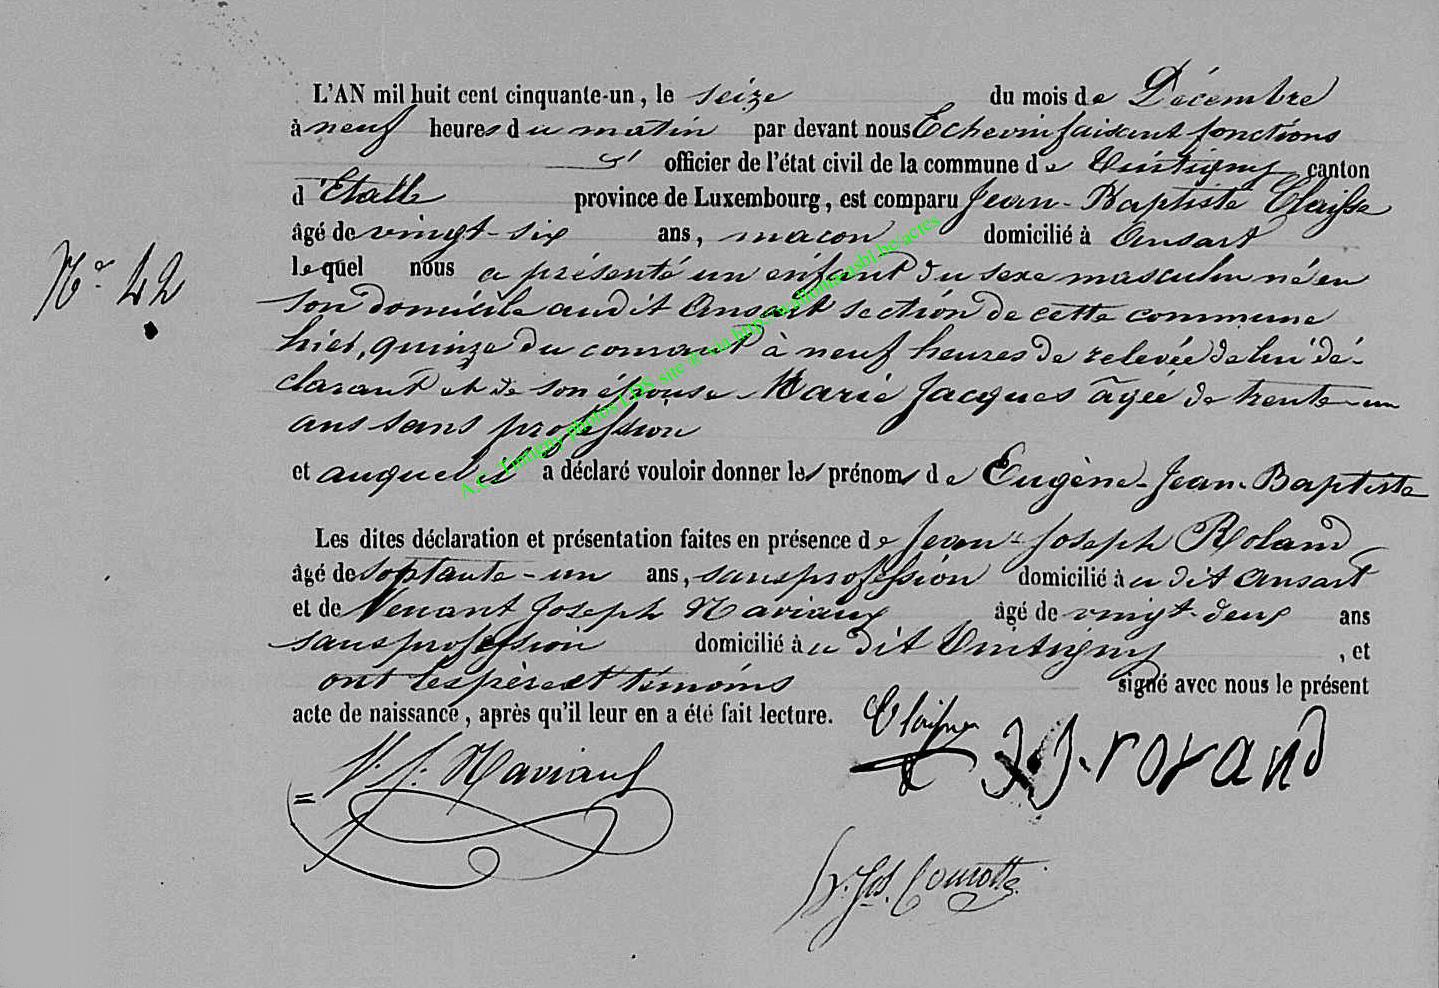 L'AN mil huit cent cinquante-un, le seize du mois de Décembre
à neuf heures du matin par devant nous Echevin faisant fonctions
d' officier de l'état civil de la commune de Tintigny canton
d'Etalle province de Luxembourg, est comparu Jean-Baptiste Claisse
âgé de vingt-six ans, macon domicilié à Ansart
lequel nous a présenté un enfant du sexe masculin né en
N° 42
son domicile audit Ansart section de cette commune
hier, quinze du courant à neuf heures de relevée de lui dé-
clarant et de son épouse Marie Jacques âgée de trente-un
ans sans profession
et auquel il a déclaré vouloir donner les prénoms de Eugène-Jean-Baptiste
A.C. Tintigny photos LDS site © via http://wallonia.asbl.be/actes
Les dites déclaration et présentation faites en présence de Jean Joseph Roland
âgé de soptante-un ans, sans profession domicilié au dit Ansart
et de Venant Joseph Naviaux âgé de vingt-deux ans
sans profession domicilié au dit Tintigny, et
ont les père et témoins signé avec nous le présent
acte de naissance, après qu'il leur en a été fait lecture. Claisse
V. J. Naviaux J.J. roland
H. Jos. Courotte